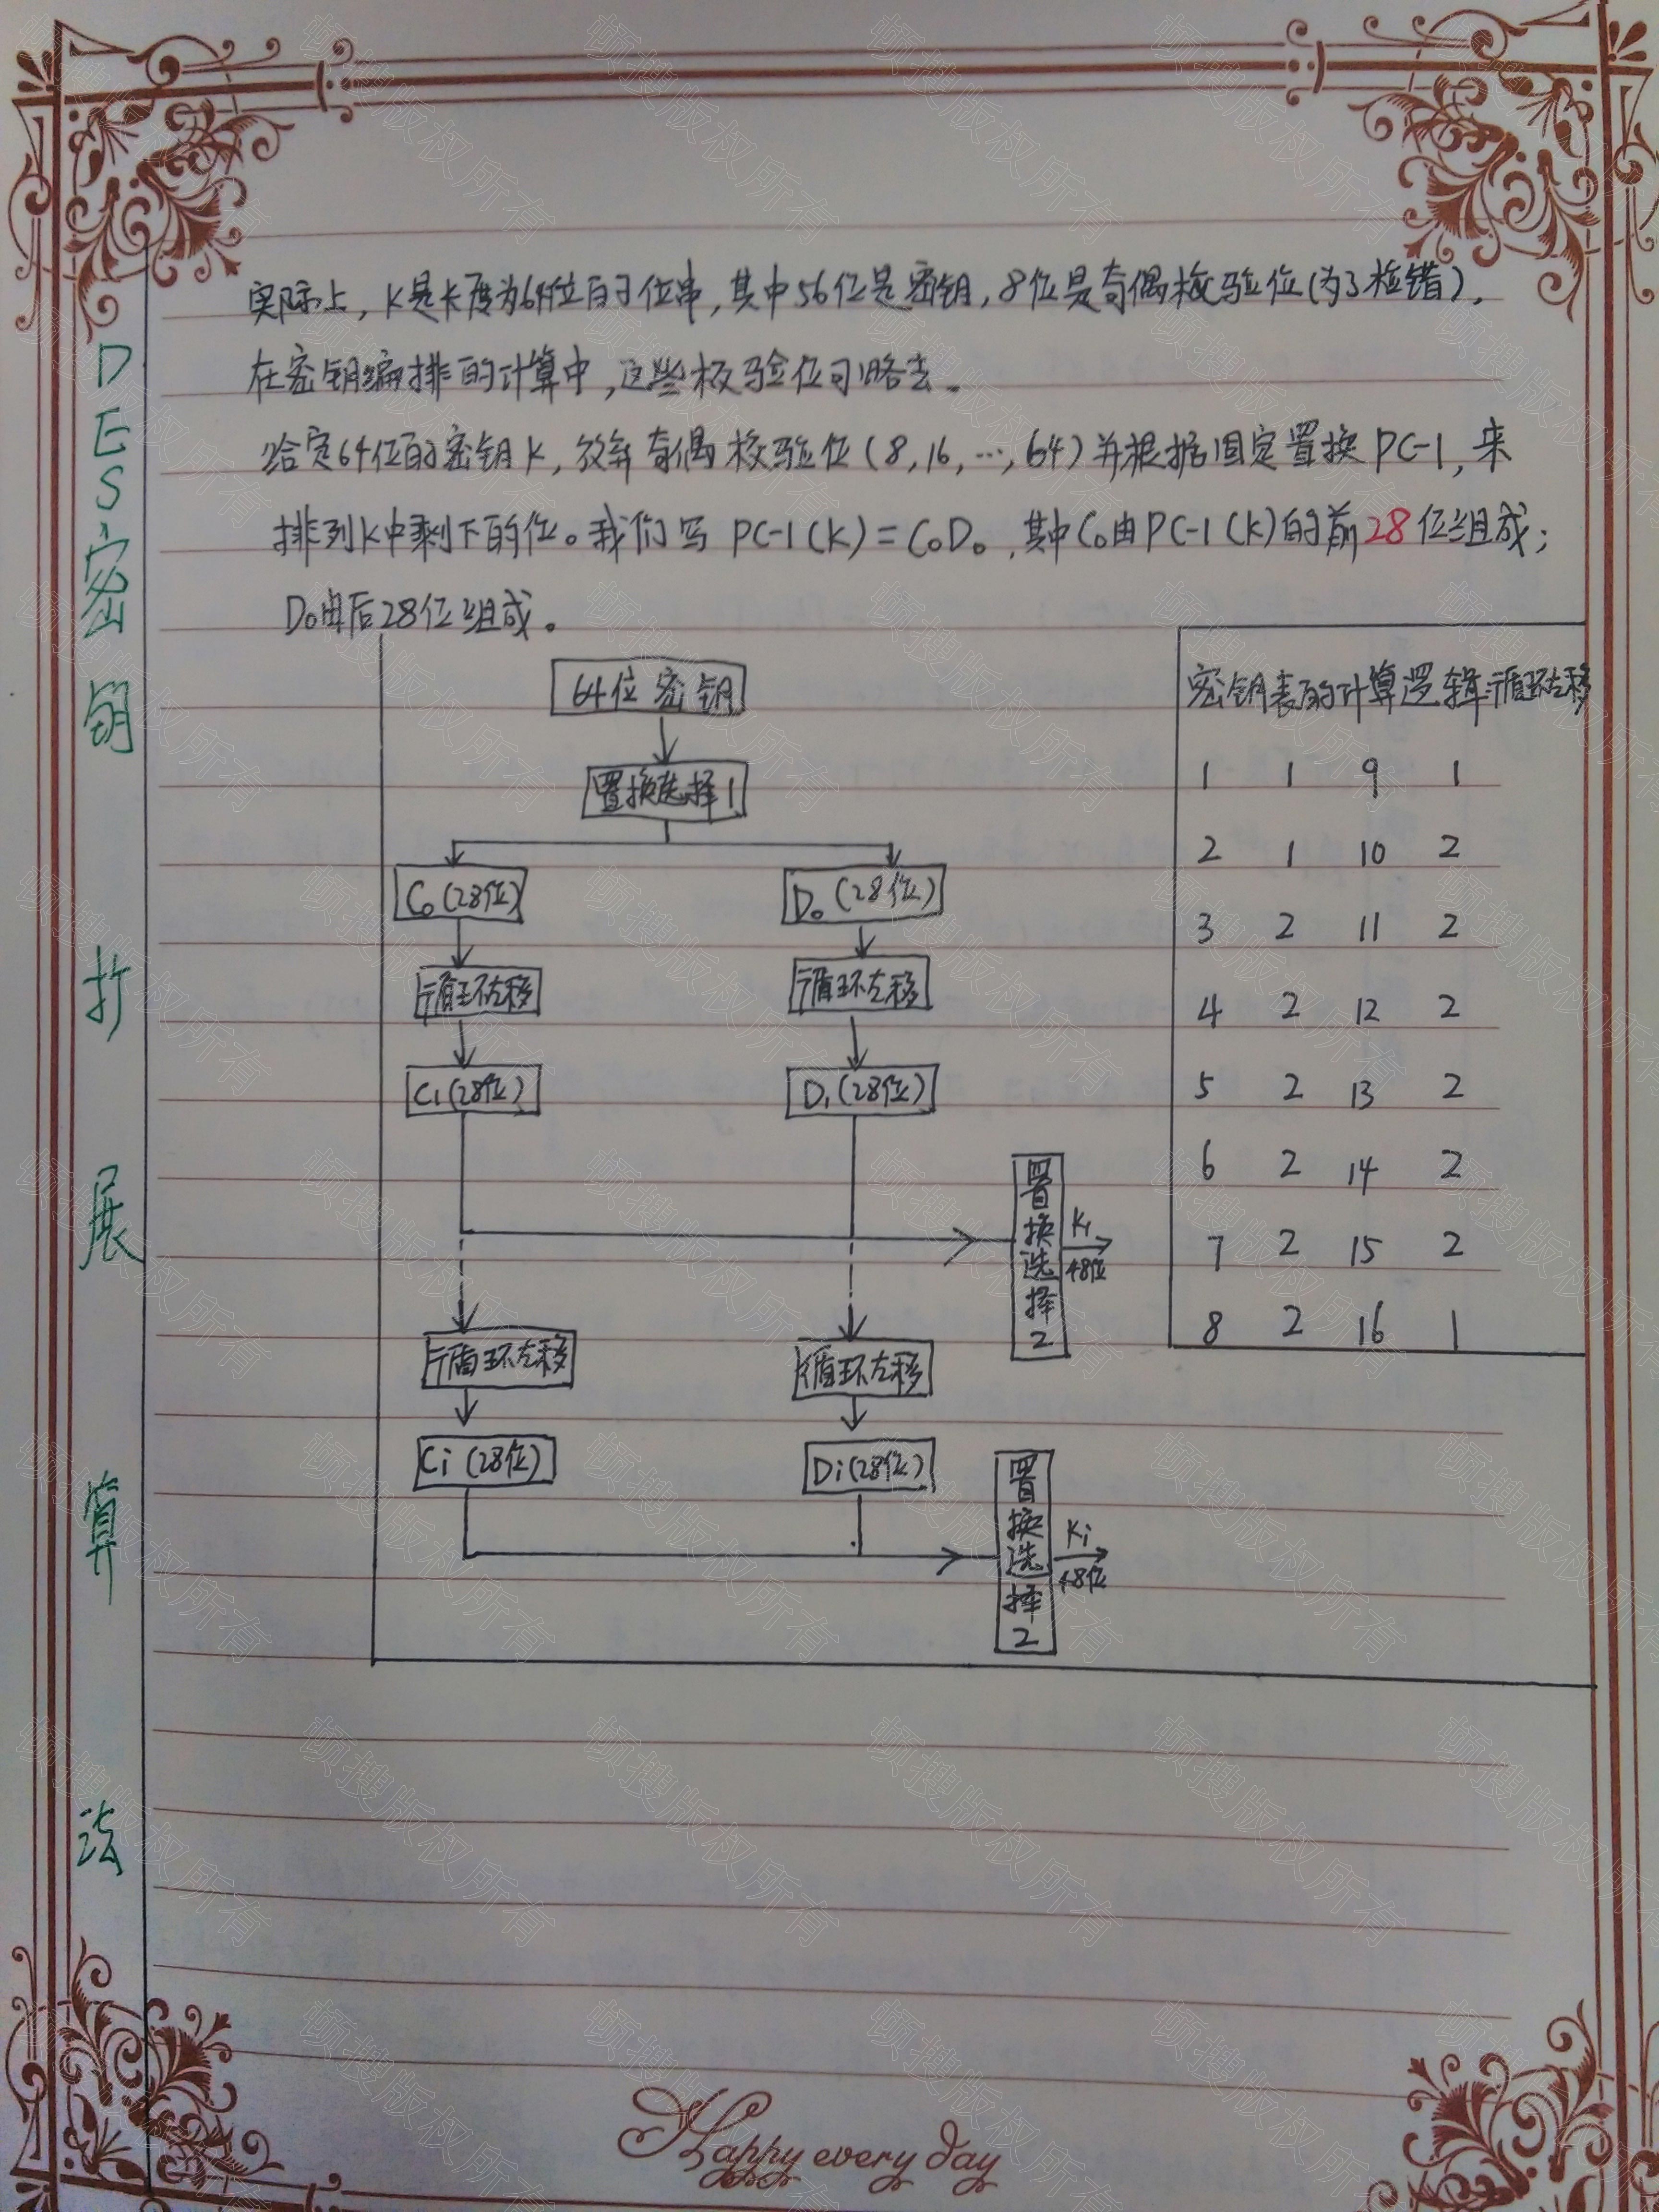 实际上，K是长度为64位的位串，其中56位是密钥，8位是奇偶校验位(为了检错)，
在密钥编排的计算中，这些校验位可略去。
给定64位的密钥K，放弃奇偶校验位(8,16,…,64)并根据固定置换PC-1，来
排列K中剩下的位。我们写 PC-1(K)=C₀D₀，其中C₀由PC-1(K)的前28位组成；
D₀由后28位组成。
DES密钥扩展算法
64位密钥
置换选择1
C₀(28位) D₀(28位)
循环左移 循环左移
C₁(28位) D₁(28位)
置换选择2
K₁
48位
循环左移 循环左移
Ci(28位) Di(28位)
置换选择2
Ki
48位
密钥表的计算逻辑循环左移
1 1 9 1
2 1 10 2
3 2 11 2
4 2 12 2
5 2 13 2
6 2 14 2
7 2 15 2
8 2 16 1
Happy every day
顿搜版权所有